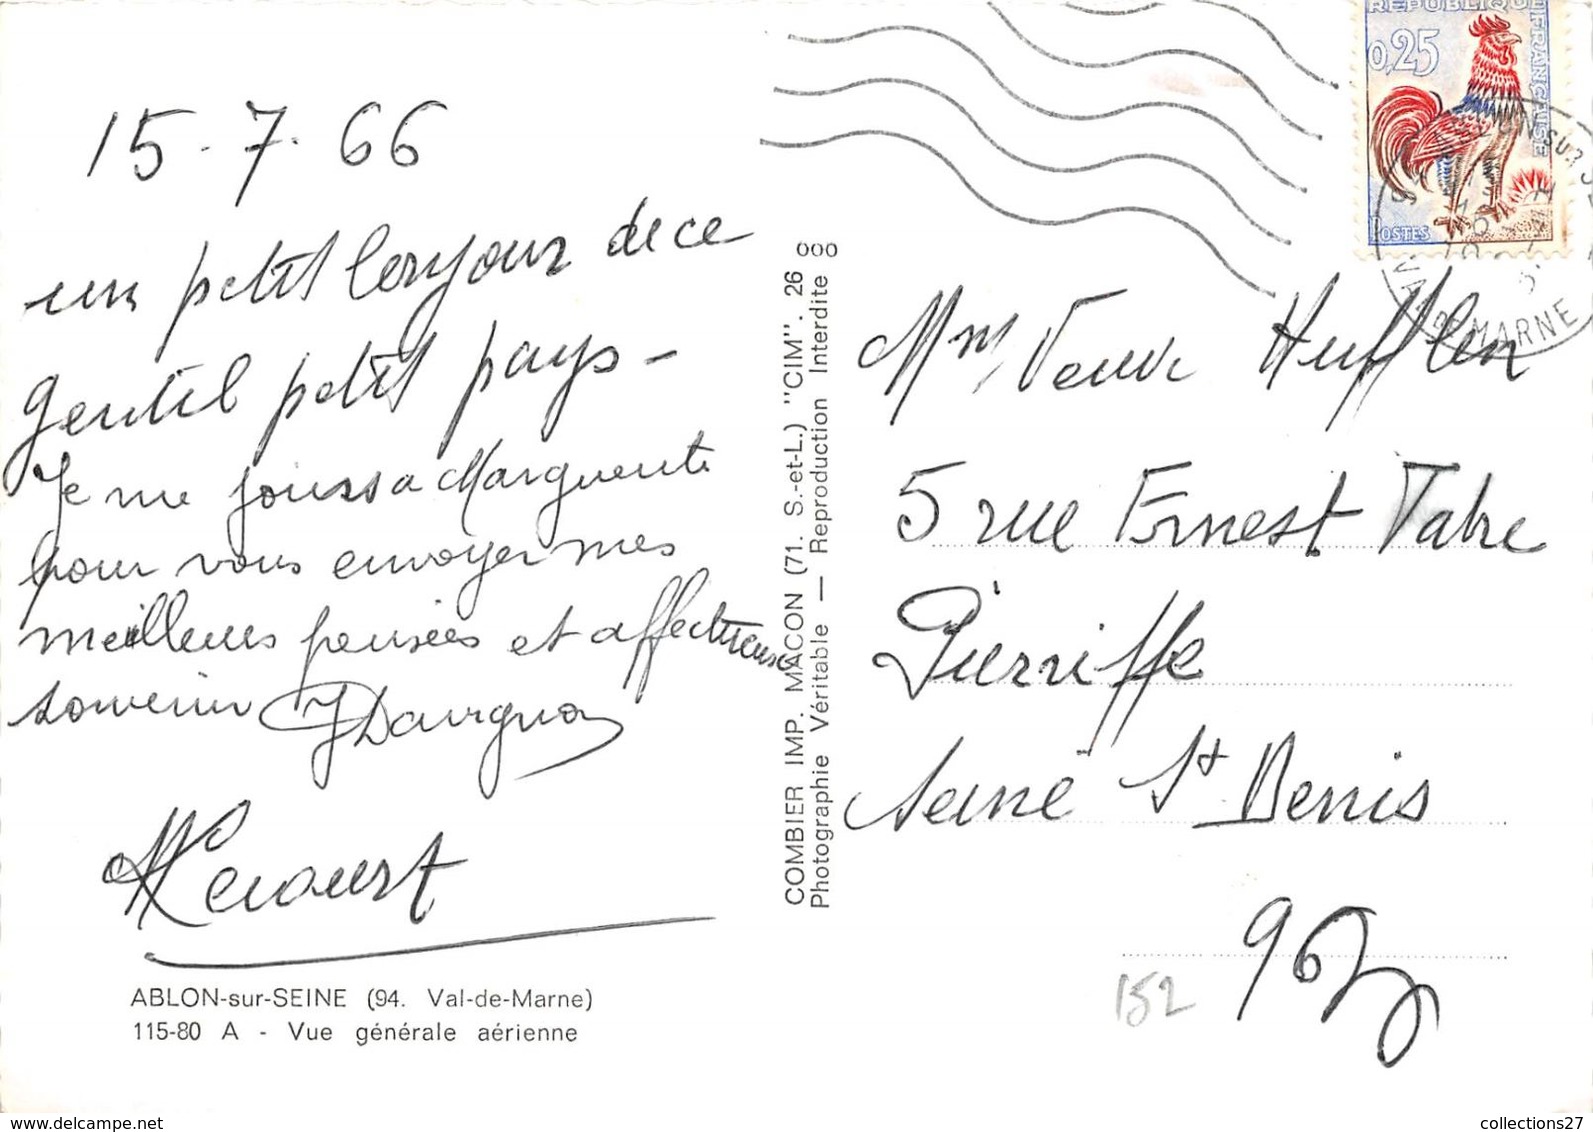 15.7.66
un petit bonjour de ce
gentil petit pays -
Je me joins a Marguerite
pour vous envoyer mes
meilleures pensées et affectueuse
souvenir
ABLON-sur-SEINE (94. Val-de-Marne)
115-80 A - Vue générale aérienne
COMBIER IMP. MACON (71. S.-et-L.) "CIM". 26 000
Photographie Véritable — Reproduction Interdite
REPUBLIQUE FRANÇAISE
0,25
POSTES
SUR S
VAL DE MARNE
Mme Veuve
5 rue Ernest Fabre
Pierrefitte
Seine St Denis
93
152
collections27